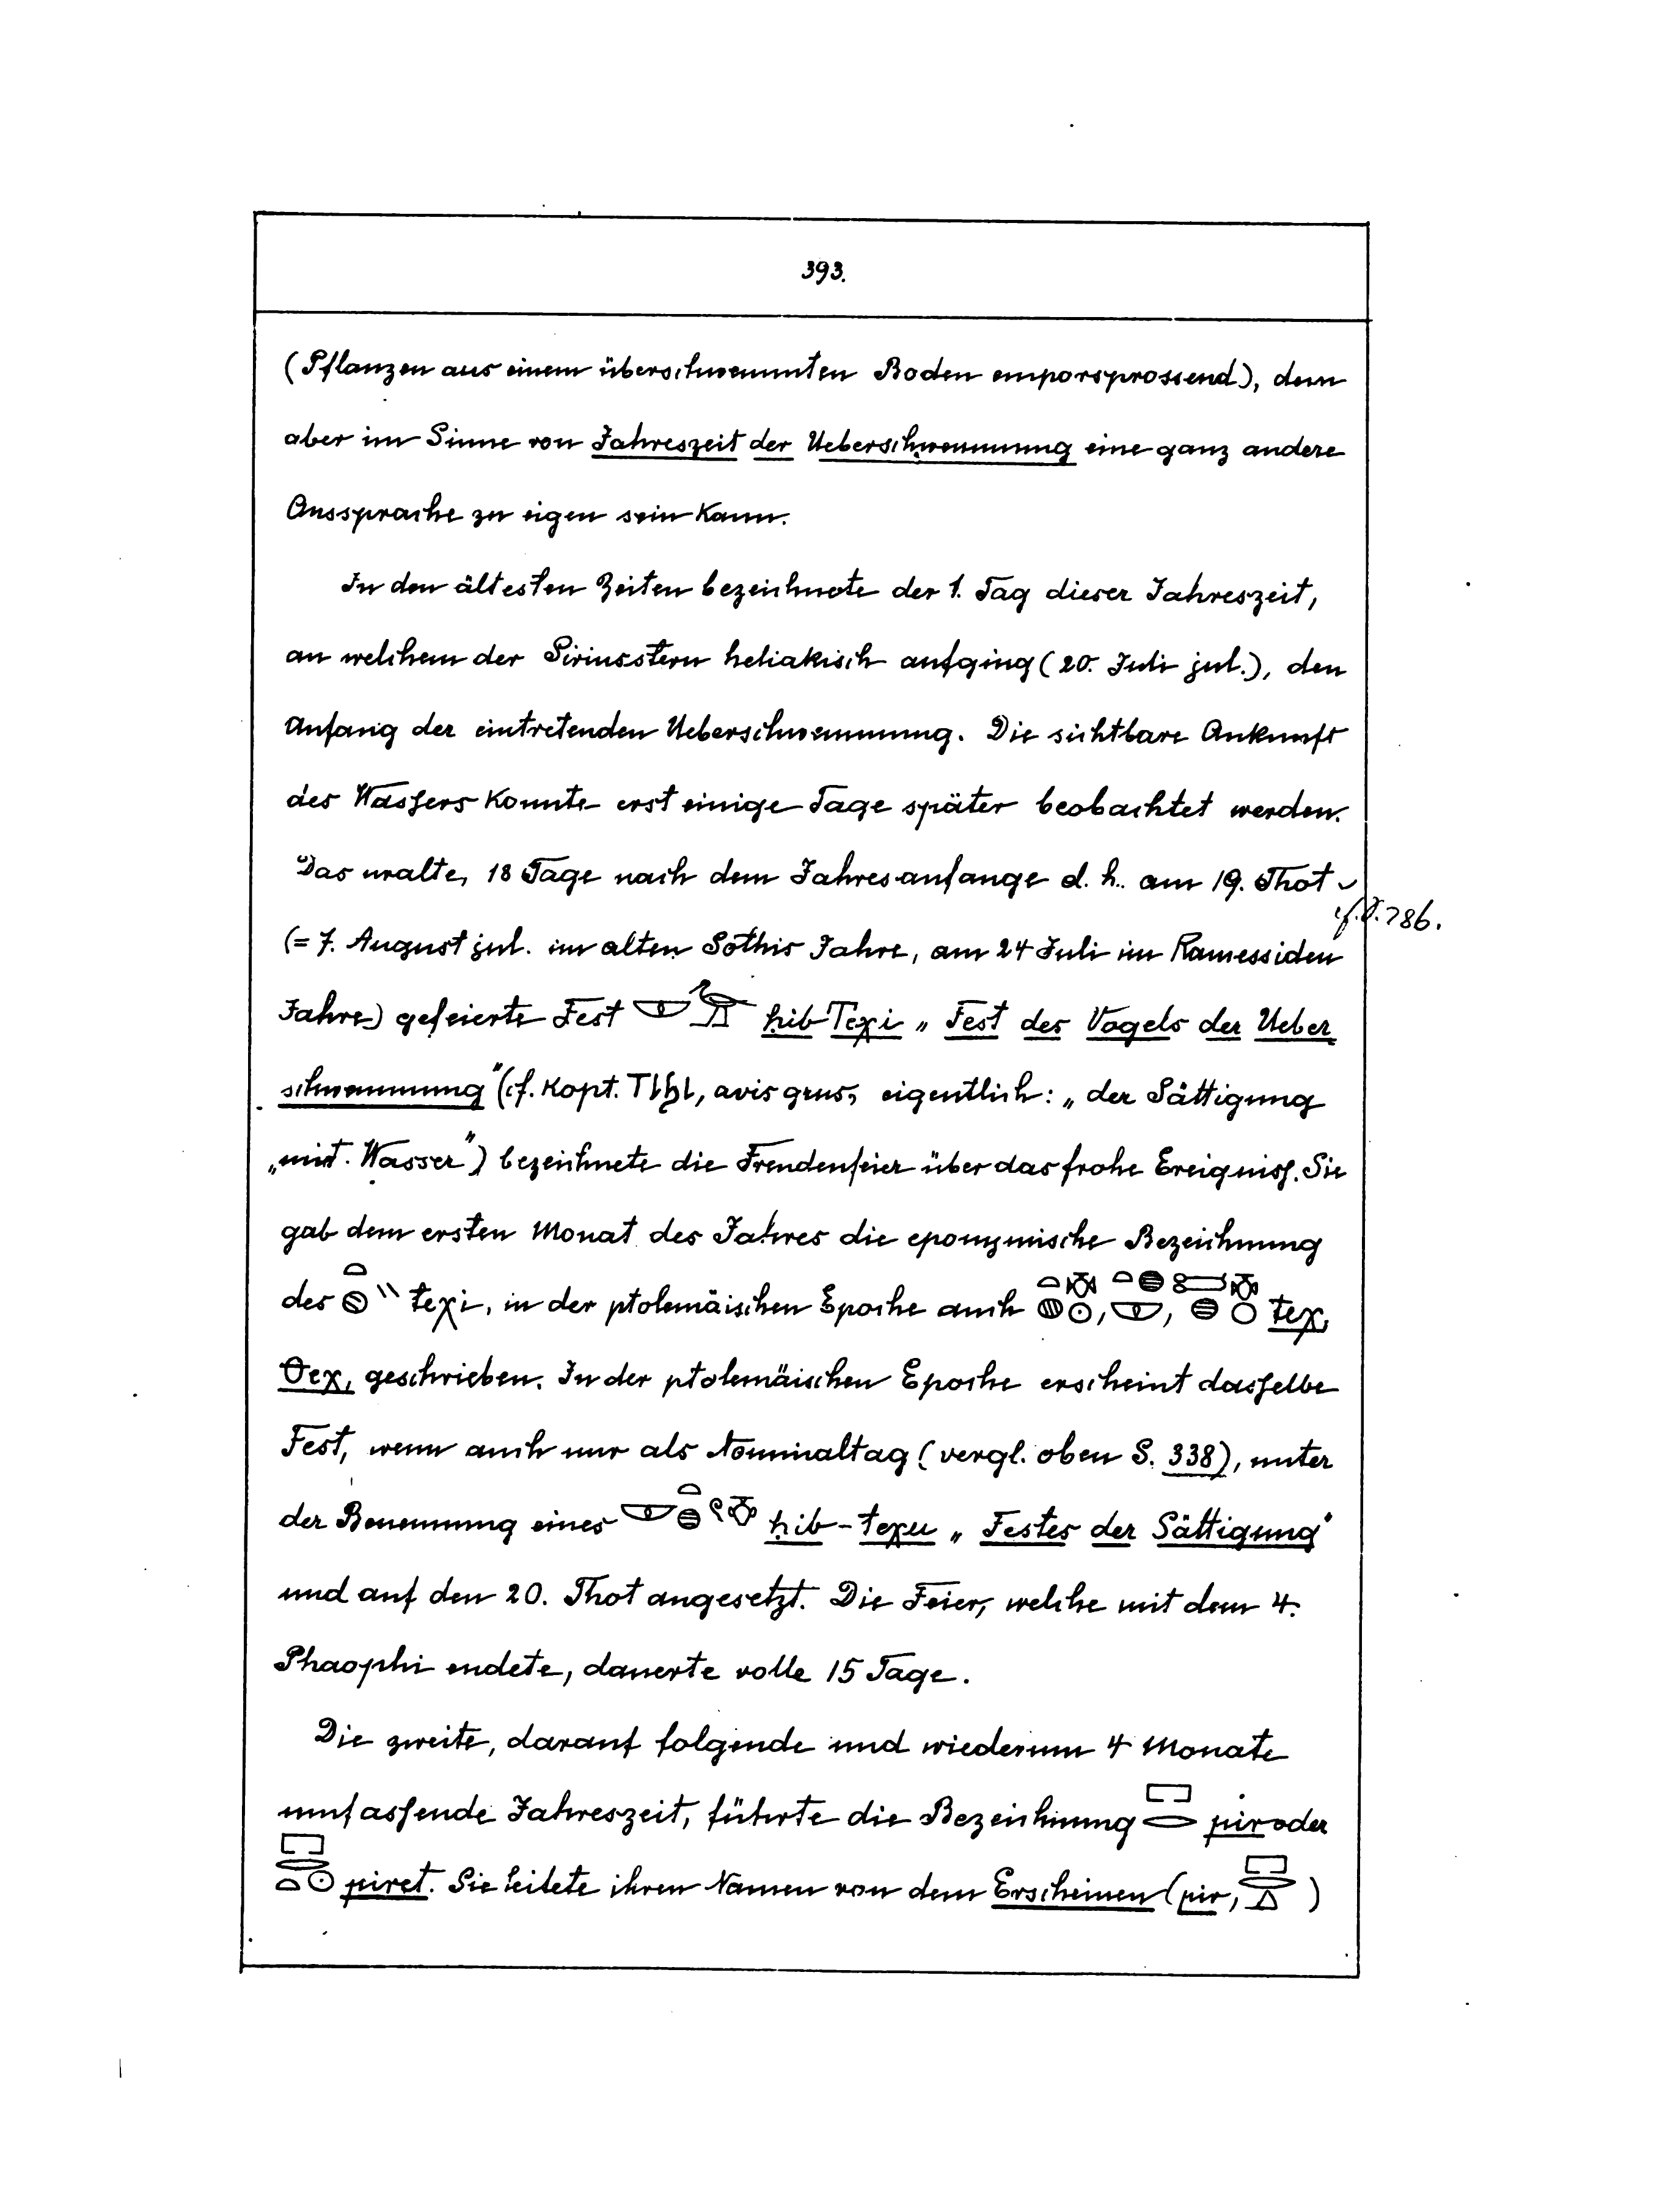 393.
(Pflanzen aus einem überschwemmten Boden emporsprossend), dem
aber im Sinne von Jahreszeit der Ueberschwemmung eine ganz andere
Aussprache zu eigen sein kann.
In den ältesten Zeiten bezeichnete der 1. Tag dieser Jahreszeit,
an welchem der Siriusstern heliakisch aufging (20. Juli jul.), den
Anfang der eintretenden Ueberschwemmung. Die sichtbare Ankunft
des Wassers konnte erst einige Tage später beobachtet werden.
Das uralte, 18 Tage nach dem Jahresanfange d. h. am 19. Thot
cf. S. 286.
(= 7. August jul. im alten Sothis Jahre, am 24 Juli im Ramessiden
Jahre) gefeierte Fest ḥib Teχi „Fest des Vogels der Ueber
schwemmung" (cf. kopt. ⲧⲓϧⲓ, avis grus, eigentlich: „der Sättigung
„mit Wasser") bezeichnete die Freudenfeier über das frohe Ereigniss. Sie
gab dem ersten Monat des Jahres die eponymische Bezeichnung
des teχi, in der ptolemäischen Epoche auch , , teχ,
Θeχ, geschrieben. In der ptolemäischen Epoche erscheint dasselbe
Fest, wenn auch nur als Nominaltag (vergl. oben S. 338), unter
der Benennung eines ḥib-teχu „Festes der Sättigung"
und auf den 20. Thot angesetzt. Die Feier, welche mit dem 4.
Phaophi endete, dauerte volle 15 Tage.
Die zweite, darauf folgende und wiederum 4 Monate
umfassende Jahreszeit, führte die Bezeichnung pir oder
piret. Sie leitete ihren Namen von dem Erscheinen (pir, )